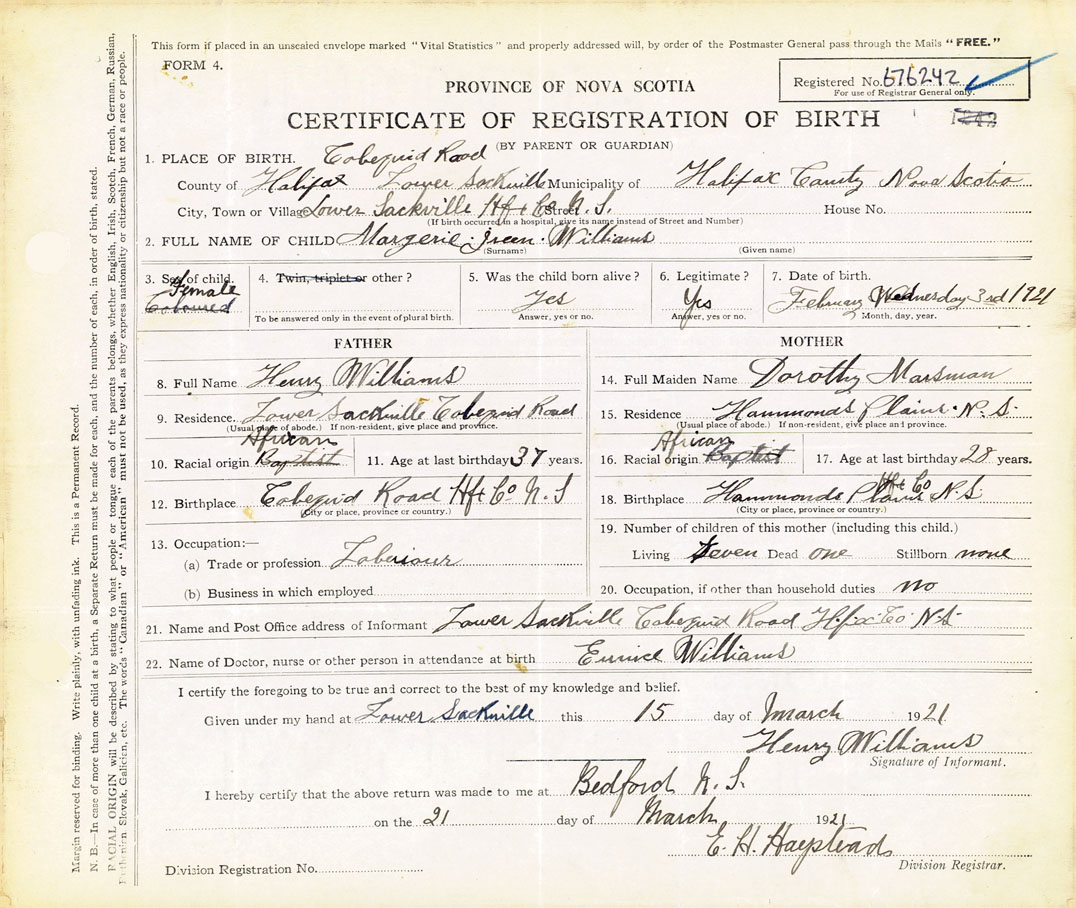 This form if placed in an unsealed envelope marked "Vital Statistics" and properly addressed will, by order of the Postmaster General pass through the Mails "FREE."
FORM 4.
Registered No. 676242
For use of Registrar General only.
PROVINCE OF NOVA SCOTIA
CERTIFICATE OF REGISTRATION OF BIRTH
1242
(BY PARENT OR GUARDIAN)
1. PLACE OF BIRTH. Cobequid Road
County of Halifax Lower Sackville Municipality of Halifax County Nova Scotia
City, Town or Village Lower Sackville Hfx Co Street N. S. House No.
(If birth occurred in a hospital, give its name instead of Street and Number)
2. FULL NAME OF CHILD Margerie Jreen Williams
(Surname) (Given name)
3. Sex of child. Female Coloured
4. Twin, triplet or other?
To be answered only in the event of plural birth.
5. Was the child born alive? Yes
Answer, yes or no.
6. Legitimate? Yes
Answer, yes or no.
7. Date of birth.
February Wednesday 3rd 1921
Month, day, year.
FATHER
8. Full Name Henry Williams
9. Residence. Lower Sackville Cobequid Road
(Usual place of abode.) If non-resident, give place and province.
African
10. Racial origin Baptist 11. Age at last birthday 37 years.
12. Birthplace Cobequid Road Hfx Co N. S
(City or place, province or country.)
13. Occupation:—
(a) Trade or profession Labaiour
(b) Business in which employed
MOTHER
14. Full Maiden Name Dorothy Marsman
15. Residence Hammonds Plains. N. S.
(Usual place of abode.) If non-resident, give place and province.
African
16. Racial origin Baptist 17. Age at last birthday 28 years.
18. Birthplace Hammonds Plains Hfx Co N. S
(City or place, province or country.)
19. Number of children of this mother (including this child.)
Living Seven Dead one Stillborn none
20. Occupation, if other than household duties no
21. Name and Post Office address of Informant Lower Sackville Cobequid Road Hfx Co N.S.
22. Name of Doctor, nurse or other person in attendance at birth Eunice Williams
I certify the foregoing to be true and correct to the best of my knowledge and belief.
Given under my hand at Lower Sackville this 15 day of March 1921
Henry Williams
Signature of Informant.
I hereby certify that the above return was made to me at Bedford N. S.
on the 21 day of March 1921
E. H.
Division Registrar.
Division Registration No.
Margin reserved for binding. Write plainly, with unfading ink. This is a Permanent Record.
N. B.—In case of more than one child at a birth, a Separate Return must be made for each, and the number of each, in order of birth, stated.
RACIAL ORIGIN will be described by stating to what people or tongue each of the parents belongs, whether English, Irish, Scotch, French, German, Russian,
Ruthenian Slovak, Galician, etc. The words "Canadian" or "American" must not be used, as they express nationality or citizenship but not a race or people.